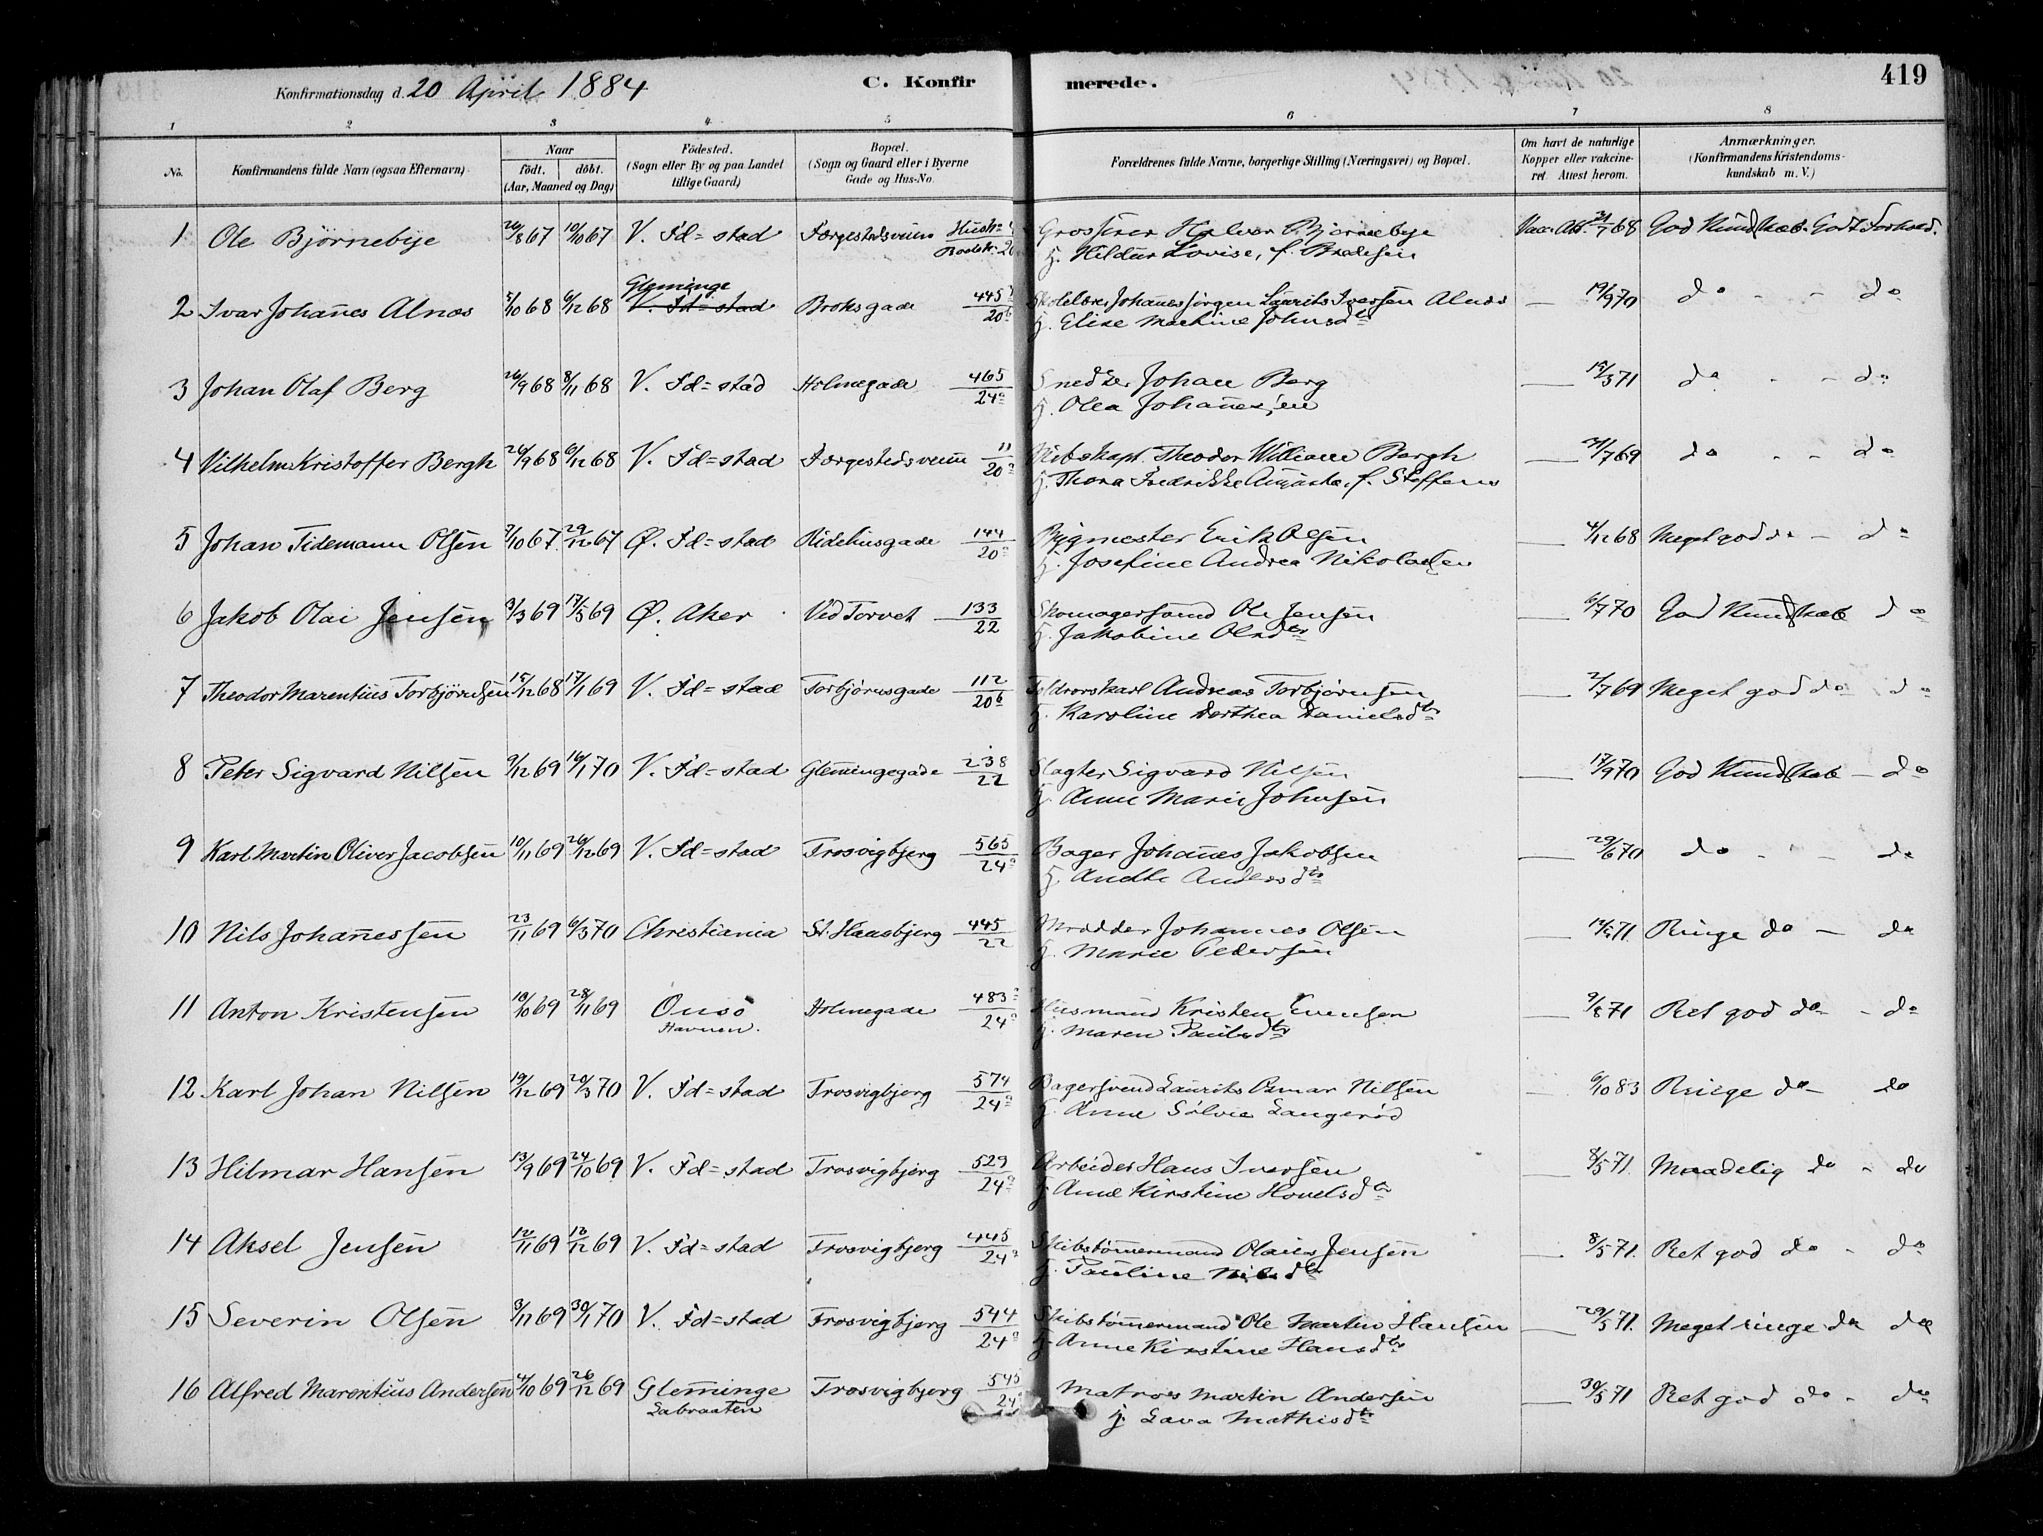 Konfirmationsdag d. 20 April 1884
C. Konfirmerede.
419
1 2 3 4 5 6 7 8
No.
Konfirmandens fulde Navn (ogsaa Efternavn).
Naar
født. døbt.
(Aar, Maaned og Dag)
Fødested.
(Sogn eller By og paa Landet tillige Gaard)
Bopæl.
(Sogn og Gaard eller i Byerne Gade og Hus-No.
Forældrenes fulde Navne, borgerlige Stilling (Næringsvei) og Bopæl.
Om havt de naturlige Kopper eller vakcineret. Attest herom.
Anmærkninger.
(Konfirmandens Kristendomskundskab m. V.)
1 Ole Björnebye 26/8 67 10/10 67 V. Fd=stad Færgestedsveien Grosserer Halvor Bjørnebye Vacc. Att. 31/7 68 God Kundskab. Godt Forhold.
H. Hildur Lovise, f.
2 Ivar Johañes Alnæs 5/10 68 6/12 68 Gleminge V. Fd=stad Broksgade 445 20b Johanes Jörgen Laurits Iversen Alnæs — 19/9 70 do - - do
H. Elise Mathine Johnsdtr
3 Johan Olaf Berg 26/9 68 8/11 68 V. Fd=stad Holmegade 465 24a Snedker Johan Berg — 15/3 71 do - - do
H. Olea Johañesen
4 Vilhelm Kristoffer Bergh 26/9 68 6/12 68 V. Fd=stad Færgestedsveien 11 20a Skibskapt. Theodor William Bergh — 31/7 69 do - - do
H. Thora Fredrikke Augusta, f. Steffens
5 Johan Tidemann Olsen 7/10 67 29/12 67 Ø. Fd=stad Ridehusgade 144 20a Bygmester Erik Olsen — 4/12 68 Meget god do - do
H. Josefine Andrea Nikolaisen
6 Jakob Olai Jensen 3/3 69 17/5 69 Ø. Aker Ved Torvet 133 22 Skomagersvend Ole Jensen — 6/7 70 God Kundskab do
H. Jakobine Olsdtr
7 Theodor Marentius Torbjörnsen 15/12 68 17/1 69 V. Fd=stad Torbjörnsgade 112 20b Toldrorskarl Andreas Torbjörnsen — 2/7 69 Meget god do do
H. Karoline Dorthea Danielsdtr
8 Peter Sigvard Nilsen 9/12 69 16/1 70 V. Fd=stad Glemingegade 238 22 Slagter Sigvard Nilsen — 17/9 70 God Kundskab - do
H. Anne Marie Johnsen
9 Karl Martin Oliver Jacobsen 10/11 69 26/12 69 V. Fd=stad Trosvigbjerg 565 24a Bager Johañes Jakobsen — 29/6 70 do - - do
H. Andersdtr
10 Nils Johañessen 23/11 69 6/3 70 Christiania St. Hansbjerg 445 22 Johannes Olsen — Ringe do - do
H. Marie Pedersen
11 Anton Kristensen 10/10 69 28/11 69 Onsö Holmegade 483 24a Husmand Kristen Evensen — 9/8 71 Ret god do - do
Havnen. H. Maren Paulsdtr
12 Karl Johan Nilsen 19/12 69 20/3 70 V. Fd=stad Trosvigbjerg 574 24a Bagersvend Laurits Osmar Nilsen - 6/10 83 Ringe do - do
H. Anne Sölvie Langeröd
13 Hilmar Hansen 13/9 69 24/10 69 V. Fd=stad Trosvigbjerg 529 24a Arbeider Hans Iversen — 8/5 71. Maadelig do - do
H. Anne Kirstine Hovelsdtr
14 Aksel Jensen 12/11 69 12/12 69 V. Fd=stad Trosvigbjerg 445 24a Skibstömmermand Olaus Jensen — 8/5 71. Ret god do - do
H. Pauline Nilsdtr
15 Severin Olsen 3/11 69 30/1 70 V. Fd=stad Trosvigbjerg 544 24a Skibstömmermand Ole Martin Hansen — 29/5 71. Meget ringe do do
H. Anne Kirstine Hansdtr
16 Alfred Marentius Andersen 4/10 69 26/12 69 Gleminge Trosvigbjerg 545 24a Matros Martin Andersen — 30/5 71 Ret god do - do
Labraaten H. Lava Mathisdtr